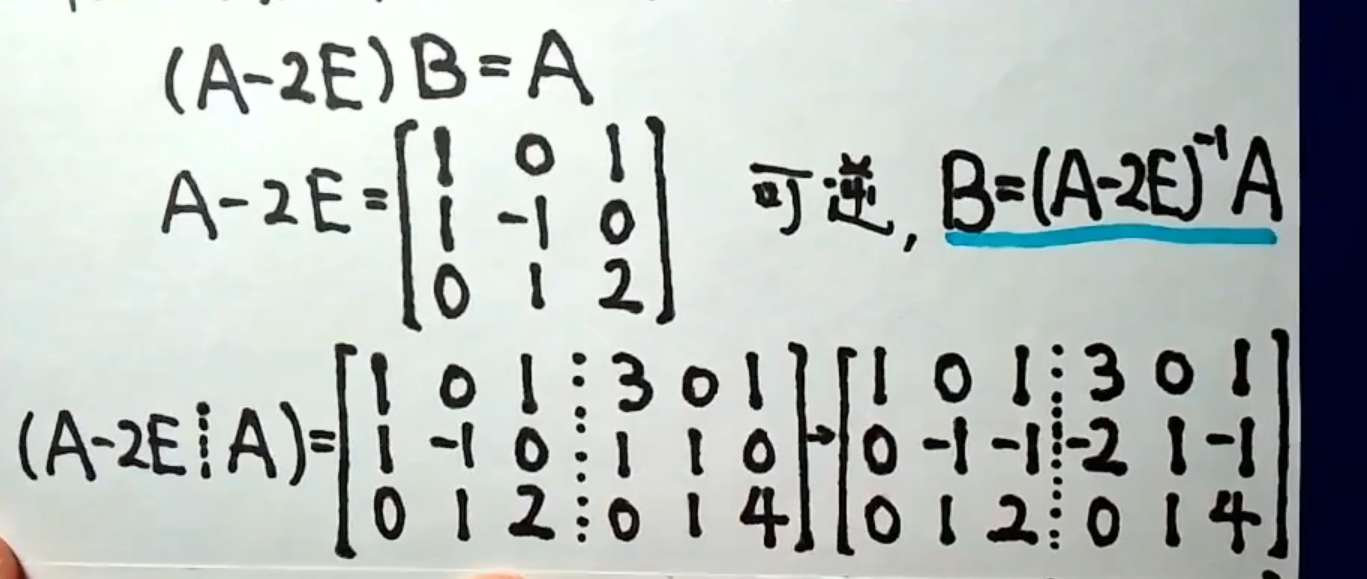 (A-2E)B=A
A-2E=[1 0 1
1 -1 0
0 1 2] 可逆, B=(A-2E)⁻¹A
(A-2E⋮A)=[1 0 1 ⋮ 3 0 1
1 -1 0 ⋮ 1 1 0
0 1 2 ⋮ 0 1 4]→[1 0 1 ⋮ 3 0 1
0 -1 -1 ⋮ -2 1 -1
0 1 2 ⋮ 0 1 4]